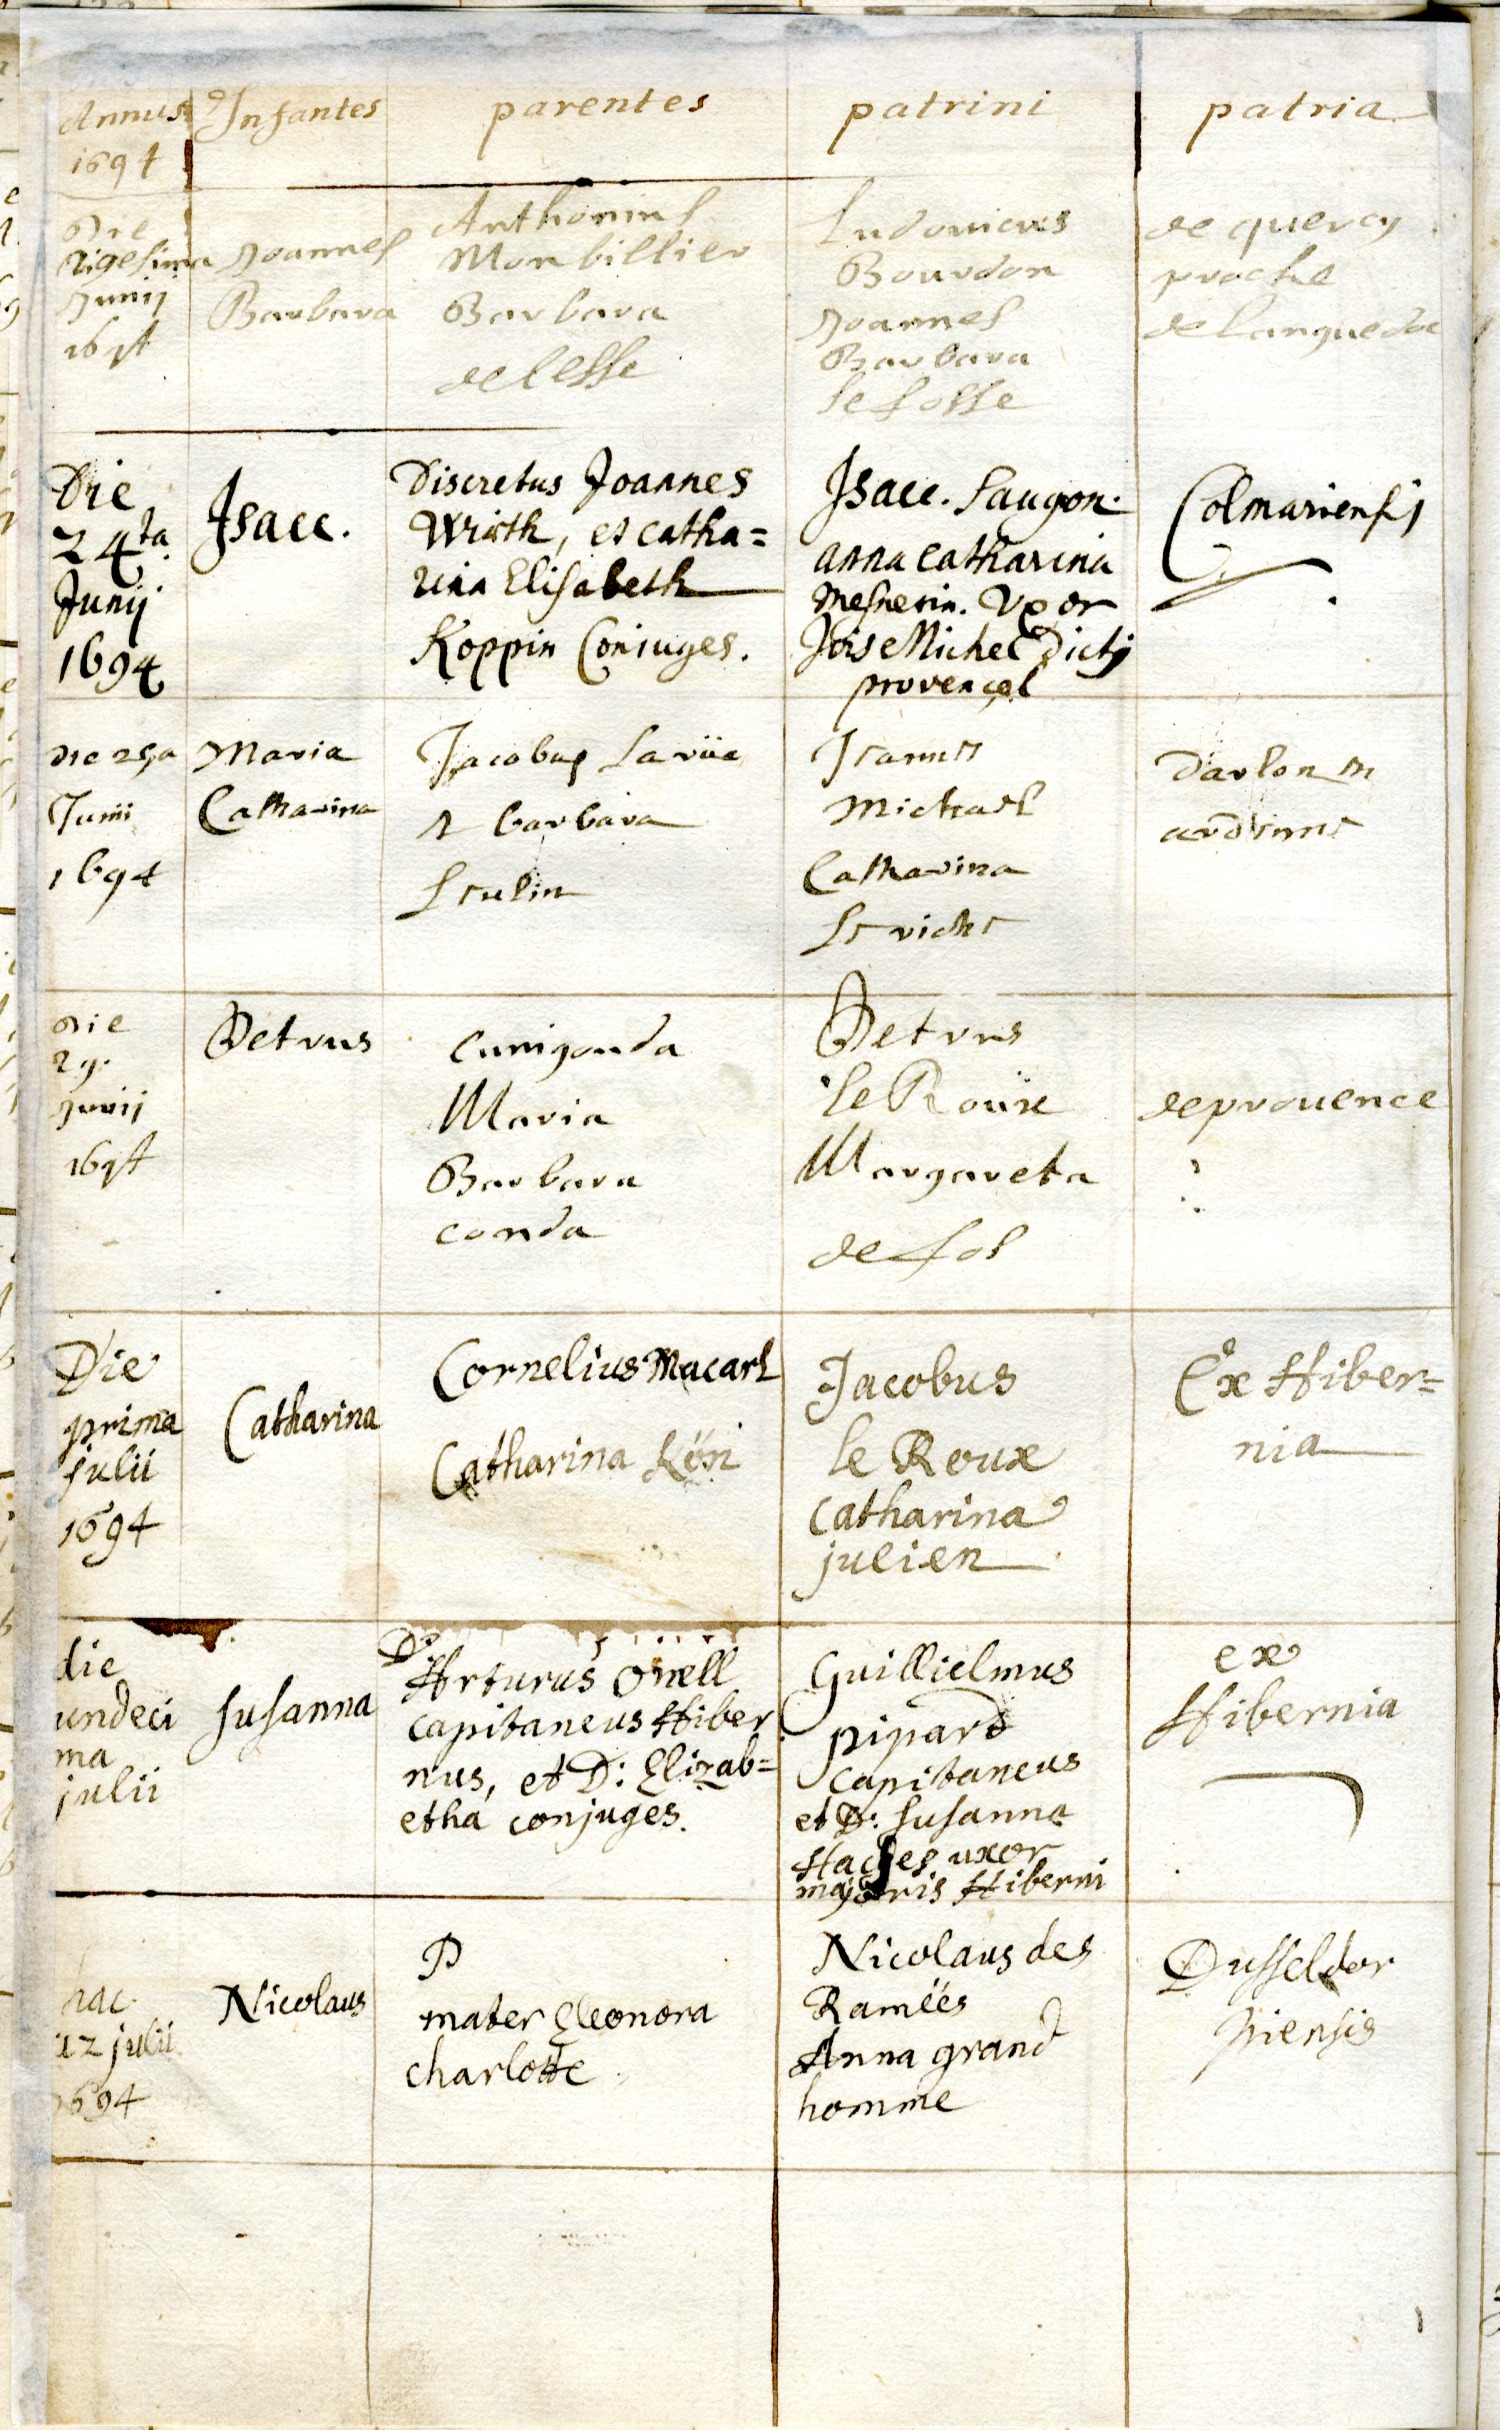 Annus
1694
Infantes
parentes
patrini
patria
Die
vigesima
Junij
1694
Joannes
Barbara
Anthonius
Monbillier
Barbara
delesse
Ludouicus
Bourdon
Joannes
Barbara
le fosse
de quercy
proche
de Languedoc
Die
24ta
Junij
1694
Isaac.
Discretus Joannes
Wirth, et Catha=
rina Elisabeth
Koppin Coniuges.
Isaac. Saugon.
anna catharina
Mesnerin. Vxor
Jois Michel Dicti
provençel
Colmariensis
die 25a
Junii
1694
Maria
Catharina
Jacobus Larüe
et barbara
Ioannes
Michael
Catharina
D'arlon en
ardenne
Die
29.
Junij
1694
Petrus
Cunigonda
Maria
Barbara
conda
Petrus
le Roüx
Margareta
de fos
de prouence
Die
prima
julii
1694
Catharina
Cornelius Macart
Catharina Röri
Jacobus
le Roux
Catharina
julien
Ex Hiber=
nia
die
undeci
ma
julii
susanna
Ds
Arturus onell
capitaneus Hiber
nus, et D: Elizab=
etha conjuges.
Guillielmus
pipard
capitaneus
et D: susanna
uxor
majoris Hiberni
ex
Hibernia
hac
12 julii
1694
Nicolaus
P
mater Eleonora
charlotte
Nicolaus des
Ramëës
Anna grand
homme
Dusseldor
piensis